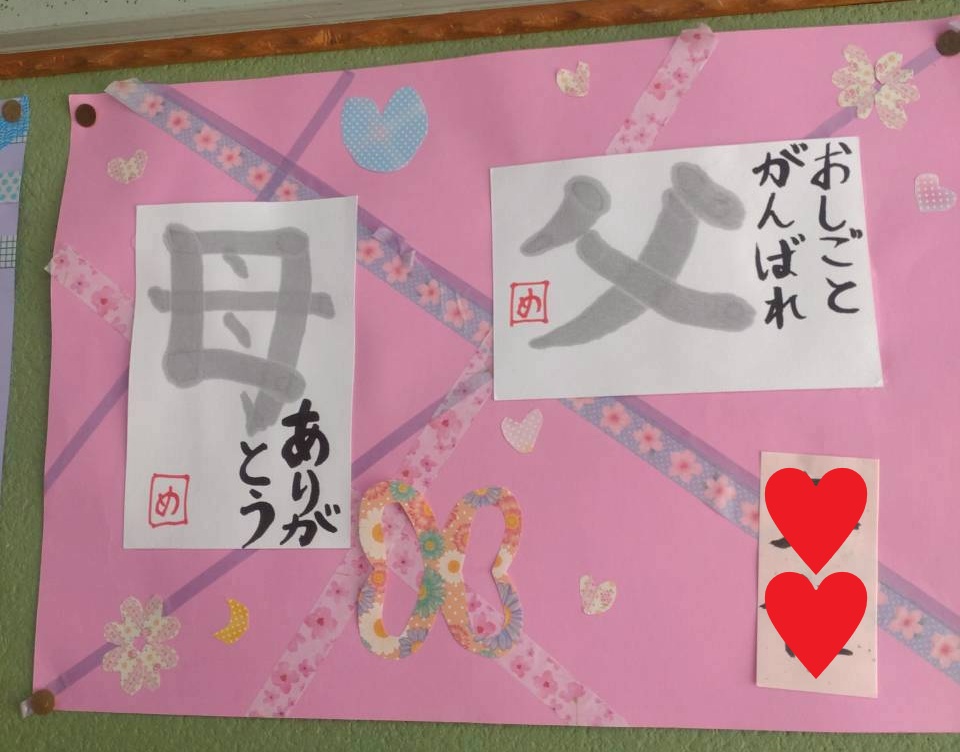 父
おしごと
がんばれ
め
母
ありが
とう
め